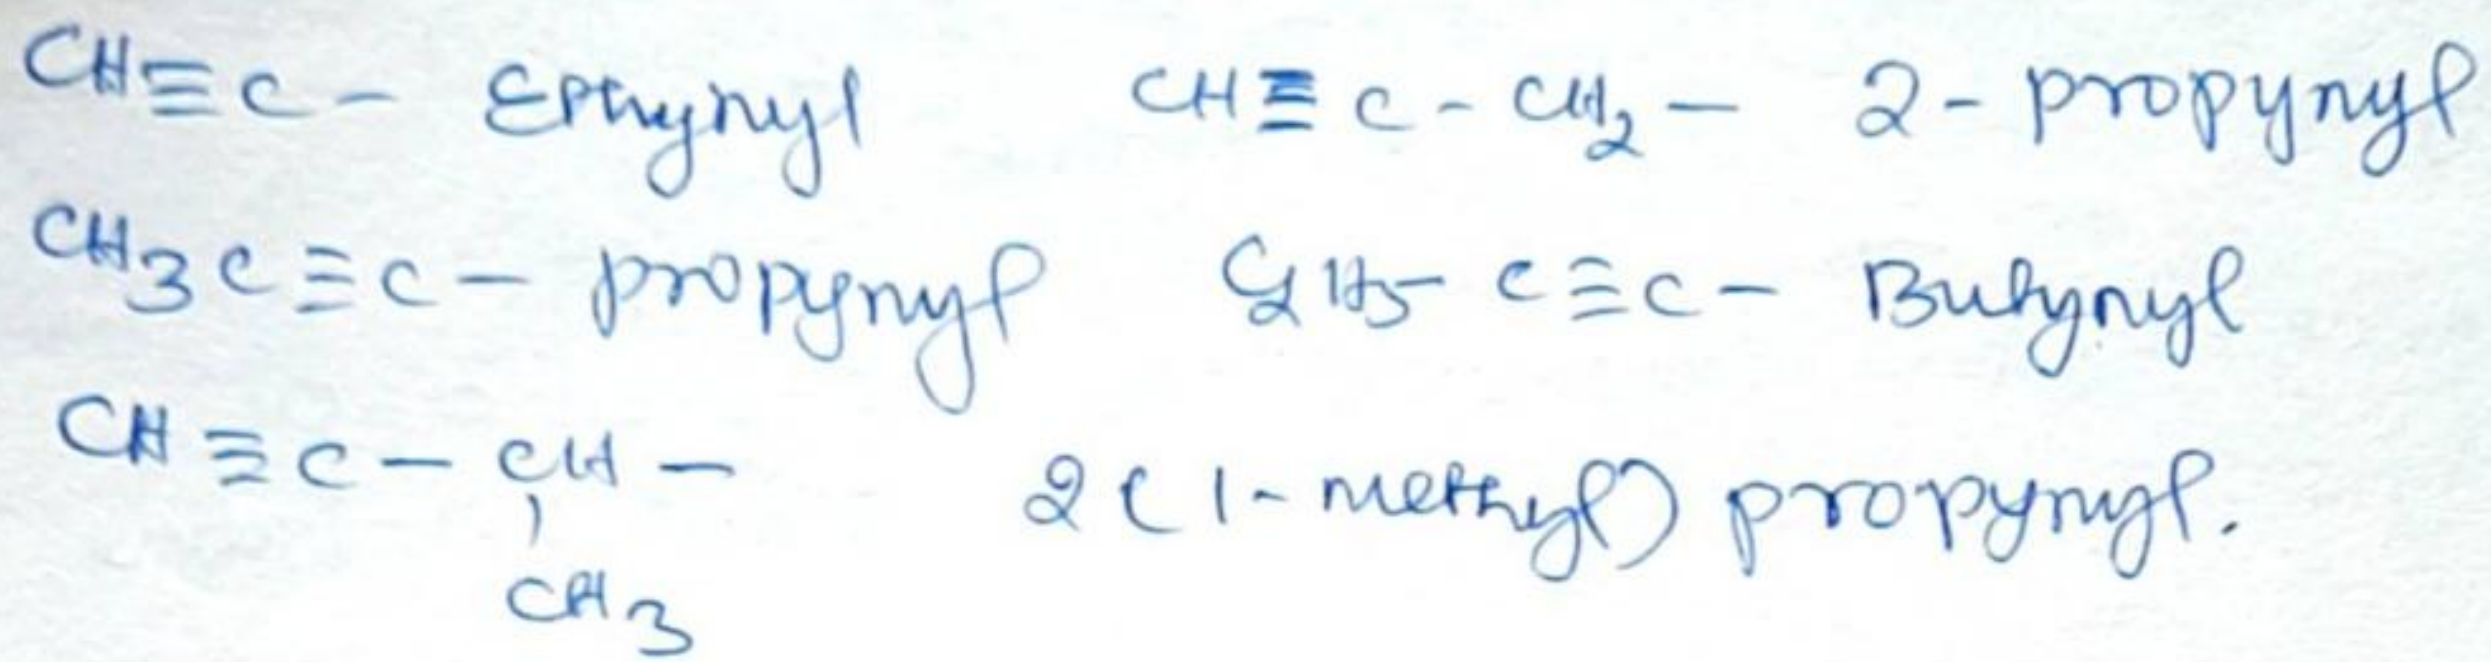 CH≡C– Ethynyl CH≡C–CH₂– 2-propynyl
CH₃C≡C– propynyl C₂H₅–C≡C– Butynyl
CH≡C–CH– 2(1-methyl) propynyl.
CH₃